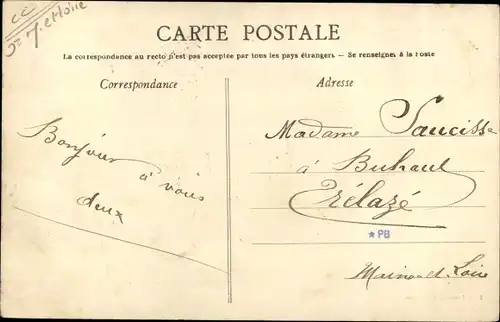 CC
M. et Loire
CARTE POSTALE
La correspondance au recto n'est pas acceptée par tous les pays étrangers — Se renseigner à la Poste
Correspondance
Adresse
Bonjour
à vous
deux
Madame Saucisse
à Buhaut
Trélazé
★PB
Maine-et-Loire